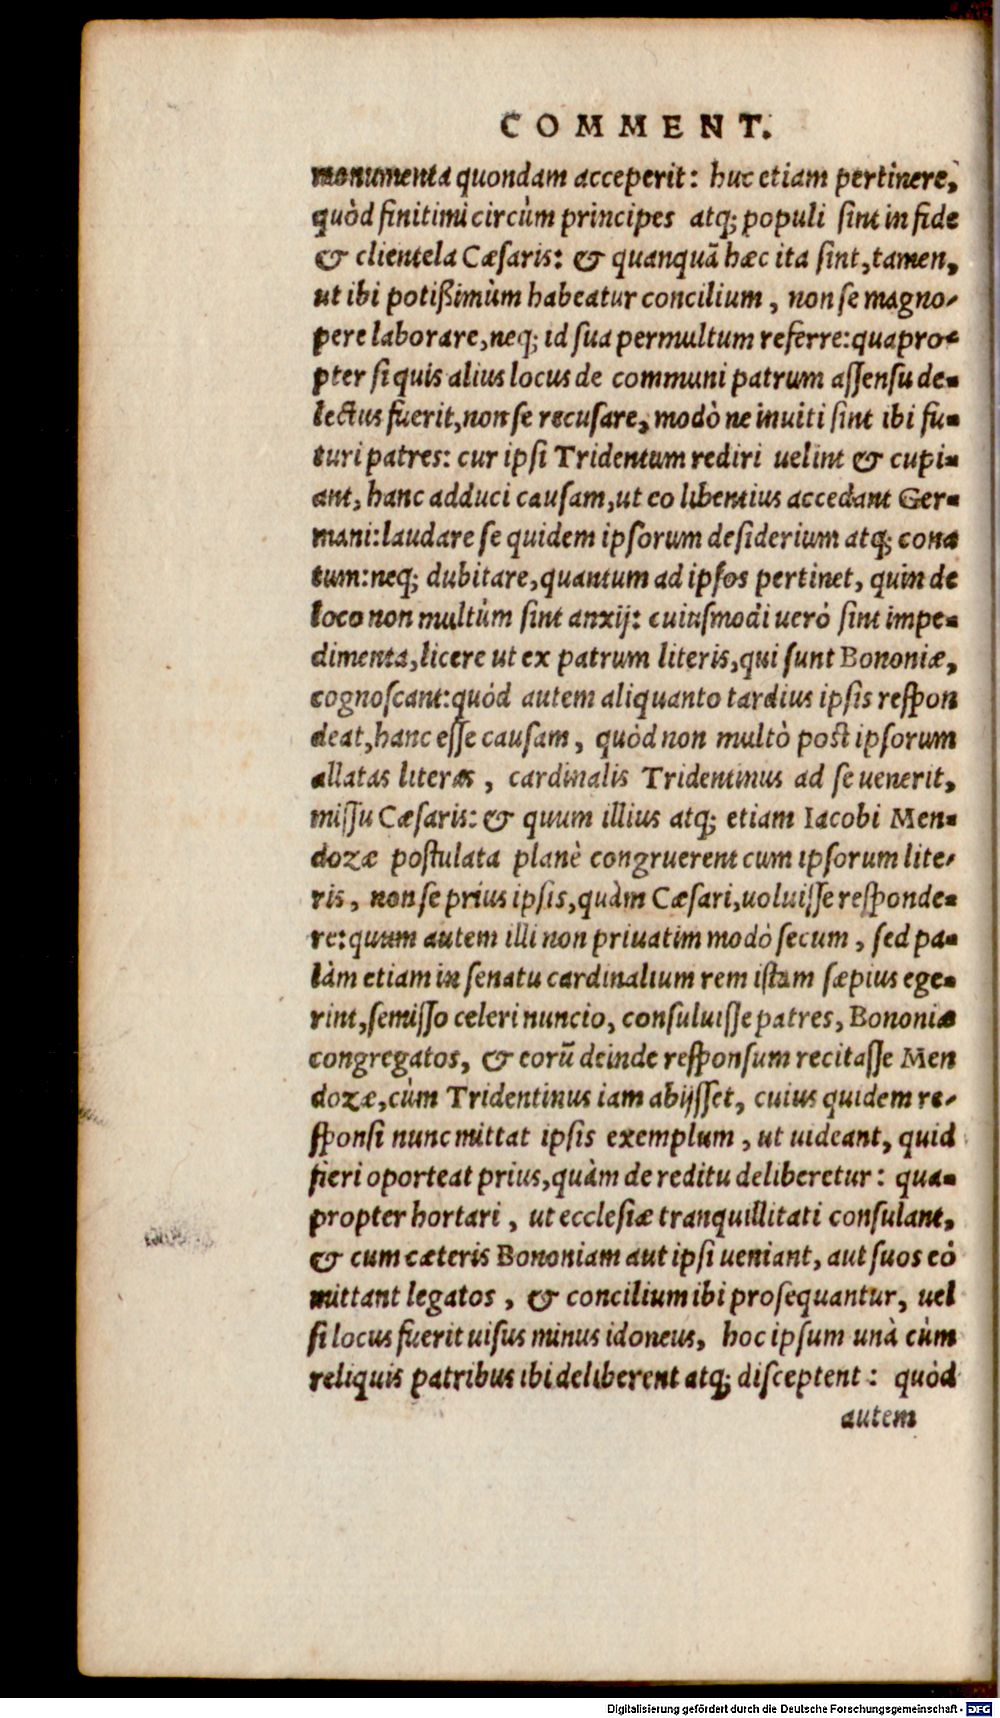 COMMENT.
monumenta quondam acceperit: huc etiam pertinere,
quòd finitimi circùm principes atq; populi sint in fide
& clientela Cæsaris: & quanquã hæc ita sint, tamen,
ut ibi potißimùm habeatur concilium, non se magno-
pere laborare, neq; id sua permultum referre: quapro-
pter si quis alius locus de communi patrum assensu de-
lectus fuerit, non se recusare, modò ne inuiti sint ibi fu-
turi patres: cur ipsi Tridentum rediri uelint & cupi-
ant, hanc adduci causam, ut eo libentius accedant Ger-
mani: laudare se quidem ipsorum desiderium atq; cona
tum: neq; dubitare, quantum ad ipsos pertinet, quin de
loco non multùm sint anxij: cuiusmodi uerò sint impe-
dimenta, licere ut ex patrum literis, qui sunt Bononiæ,
cognoscant: quòd autem aliquanto tardius ipsis respon
deat, hanc esse causam, quòd non multò post ipsorum
allatas literas, cardinalis Tridentinus ad se uenerit,
missu Cæsaris: & quum illius atq; etiam Iacobi Men-
dozæ postulata planè congruerent cum ipsorum lite-
ris, non se prius ipsis, quàm Cæsari, uoluisse responde-
re: quum autem illi non priuatim modò secum, sed pa-
làm etiam in senatu cardinalium rem istam sæpius ege-
rint, se misso celeri nuncio, consuluisse patres, Bononiæ
congregatos, & eorũ deinde responsum recitasse Men
dozæ, cùm Tridentinus iam abijsset, cuius quidem re-
sponsi nunc mittat ipsis exemplum, ut uideant, quid
fieri oporteat prius, quàm de reditu deliberetur: qua-
propter hortari, ut ecclesiæ tranquillitati consulant,
& cum cæteris Bononiam aut ipsi ueniant, aut suos eò
mittant legatos, & concilium ibi prosequantur, uel
si locus fuerit uisus minus idoneus, hoc ipsum unà cùm
reliquis patribus ibi deliberent atq; disceptent: quòd
autem
Digitalisierung gefördert durch die Deutsche Forschungsgemeinschaft - DFG